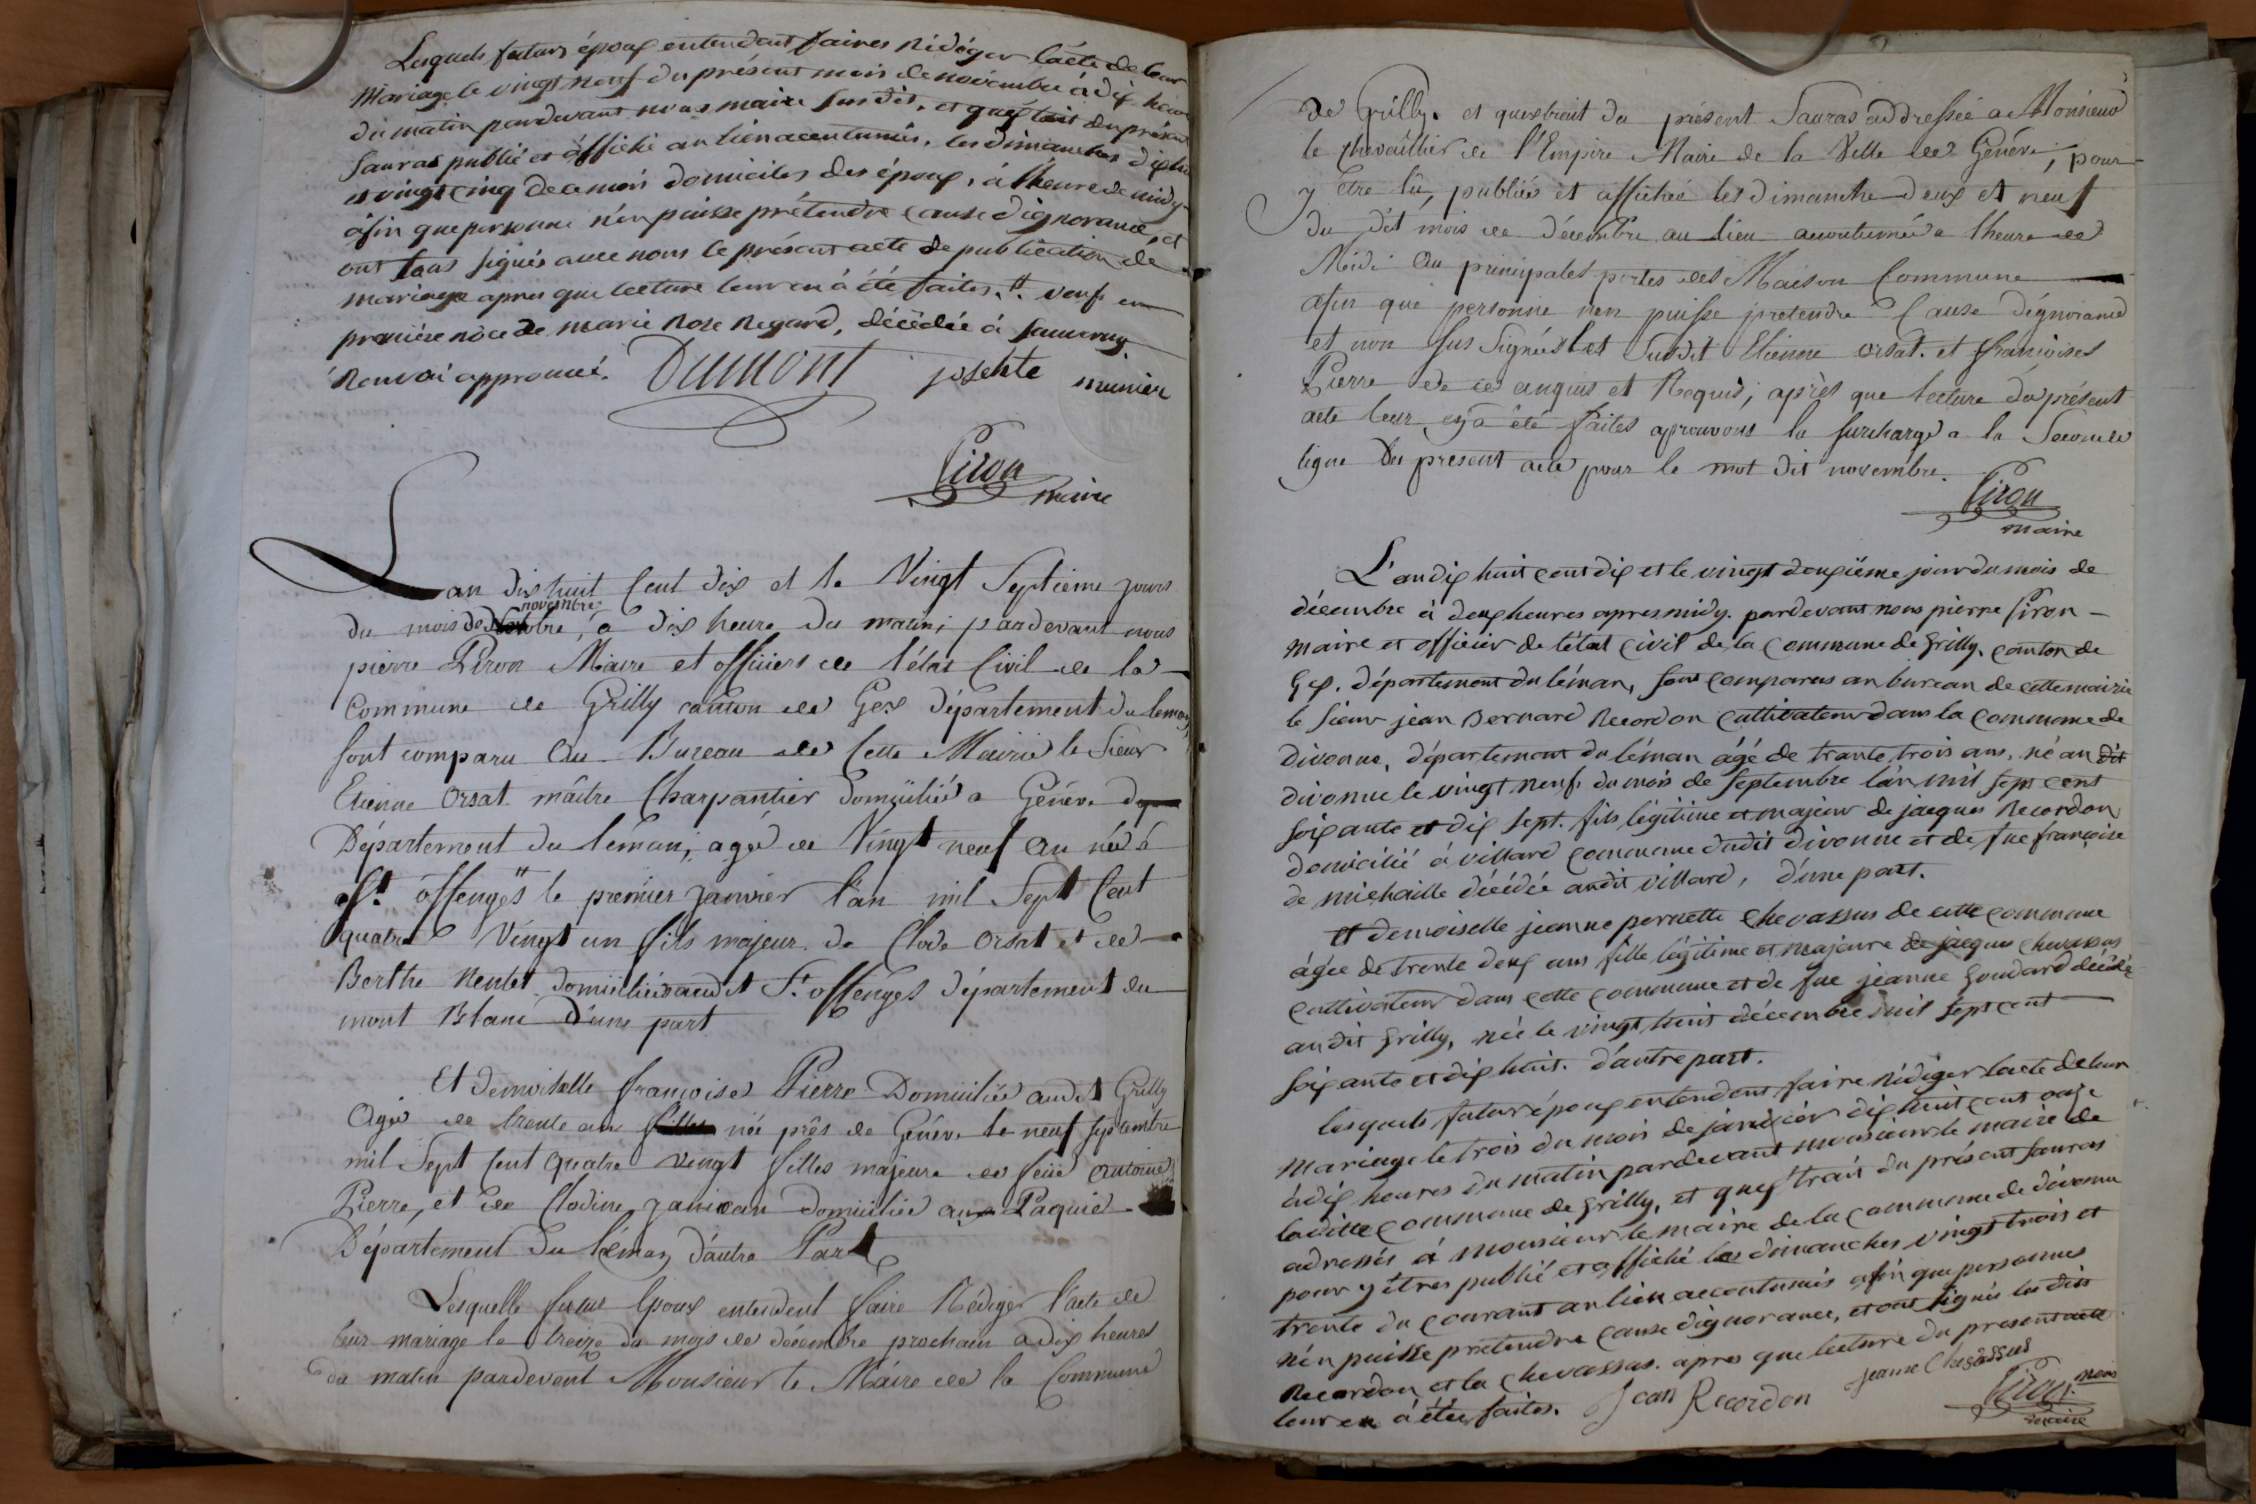 Lesquels futurs époux entendent faires Rédiger l'acte de leur
Mariage le vingt neuf du présent mois de novembre à dix heure
du matin pardevant nous maire susdit, et qu'extrait du présent
sauras publié et affiché au lien accoutumés, les dimanches dix huit
et vingt cinq de ce mois domiciles des époux, à l'heure de midy
afin que personne n'en puisse prétendre cause d'ignorance, et
ont tous signés avec nous le présent acte de publication de
mariage apres que lecture leur en à été faites. # veuf en
première nôce de marie Rose Regard, décédée à Sauverny.
Renvoi approuvé. Dumont josehte munier
Piron
maire
L'an dix huit Cent dix et le Vingt Septieme jours
novembre
du mois de octobre, a dix heure du matin, pardevant nous
pierre Piron Maire et officiers de l'état Civil de la
Commune de Grilly canton de Gex Département du leman,
sont comparu Au Bureau de Cette Mairie le Sieur
Etienne Orsat maître Charpantier domicilié a Genève
Département du léman, agé de Vingt neuf An né à
St. offenges le premier janvier l'an mil Sept Cent
quatre Vingt un fils majeur de Clode Orsat et de
Berthe Neulet domiciliés audit St. offenges département du
mont Blanc d'une part
Et demoiselle françoise Pierre Domiciliée audit Grilly
Agée de trente an née près de Genève le neuf septembre
mil Sept Cent quatre Vingt filles majeure de feüe Antoine
Pierre, et de Clodine janivan domiciliée aux Paquié
Département du Leman d'autre Part
Lesquelle futur Epoux entendent faire Rédiger l'acte de
leur mariage le treize du mois de décembre prochain a dix heures
du matin pardevent Monsieur le Maire de la Commune
de Grilly. et qu'extrait du présent Sauras addressée a Monsieur
le chevaillier de l'Empire Maire de la Ville de Genéve, pour
y être lû, publiés et affichée les dimanche deux et neuf
du dit mois de décembre au lieu accoutumée a l'heure de
Midi Au principales portes des Maison Commune
afin que personne nen puisse pretendre Cause d'ignorance
et non sus Signées let susdit Etienne Orsat. et françoises
Pierre de ce enquis et Requis; après que lecture du présent
acte leur en a été faites aprouvons la surcharge a la Seconde
ligne du present acte pour le mot dit novembre.
Piron
maire
L'an dix huit cent dix et le vingt deuxième jour du mois de
décembre à deux heures apres midy. pardevant nous pierre Piron
maire et officier de l'état civil de la commune de Grilly, canton de
Gex. département du léman, sont comparus au bureau de cette mairie
le sieur jean Bernard Recordon cultivateur dans la commune de
divonne, département du léman âgé de trante trois ans, né au dit
divonne le vingt neuf du mois de septembre l'an mil sept cent
soixante et dix sept. fils légitime et majeur de jacques Recordon
domicilié à villard commune dudit divonne et de fue françoise
de michaille décédée audit villard, d'une part.
et demoiselle jeanne pernette chevassus de cette commune
âgée de trente deux ans fille légitime et majeure de jacques chevassus
cultivateur dans cette commune et de fue jeanne Goudard décédée
audit Grilly, née le vingt huit décembre mil sept cent
soixante et dix huit. d'autre part.
lesquels futur époux entendent faire Rédiger l'acte de leur
mariage le trois du mois de janvier dix huit cent onze
à dix heures du matin pardevant monsieur le maire de
laditte commune de Grilly, et qu'extrait du présent sauras
adressés à monsieur le maire de la commune de divonne
pour y êtres publié et affiché les dimanches vingt trois et
trente du courant au lieu accoutumés afin que personnes
n'en puisse pretendre cause d'ignorance, et ont signés les dits
Recordon et la chevassus. apres que lecture du present acte
leur en à étée faites. Jean Recordon jeanne Chevassus
Piron nous
maire